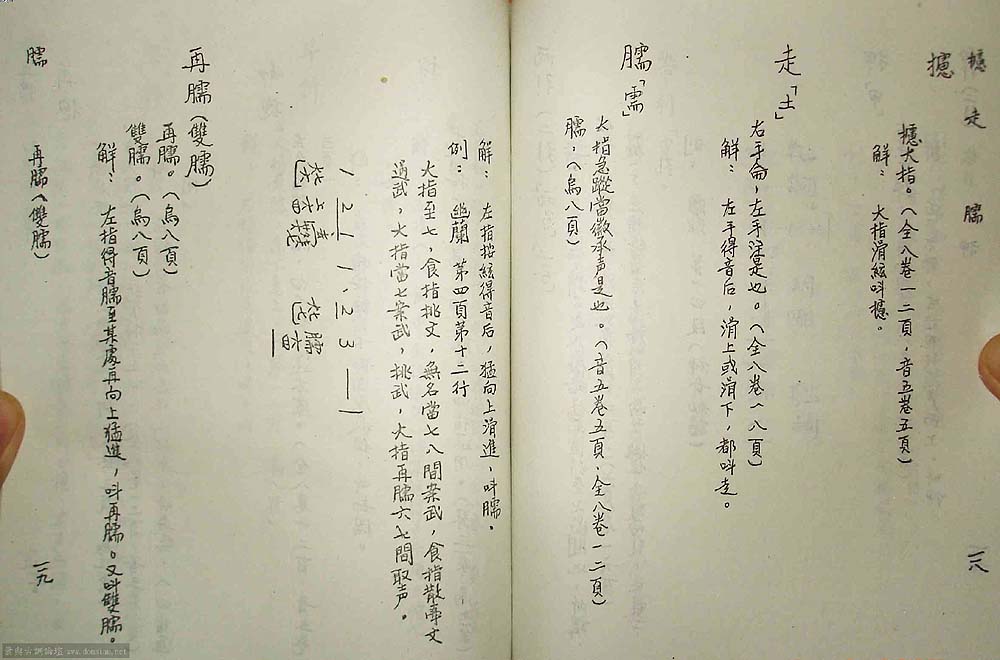 攄 走 臑
攄
攄大指。(全八卷一二頁，音五卷五頁)
解： 大指滑絃叫攄。
走「土」
右手侖，左手淫是也。(全八卷一八頁)
解： 左手得音后，滑上或滑下，都叫走。
臑「需」
大指急蹤當徽承声是也。(音五卷五頁，全八卷一二頁)
臑，(烏八頁)
一八
解： 左指按絃得音后，猛向上滑進，叫臑。
例： 幽蘭 第四頁第十二行
大指至七，食指挑文，無名當七八間案武，食指散牽文
武，大指當七案武，挑武，大指再臑六七間取声。
再臑(雙臑)
再臑。(烏八頁)
雙臑。(烏八頁)
解： 左指得音臑至某處再向上猛進，叫再臑。又叫雙臑。
臑 再臑(雙臑)
一九